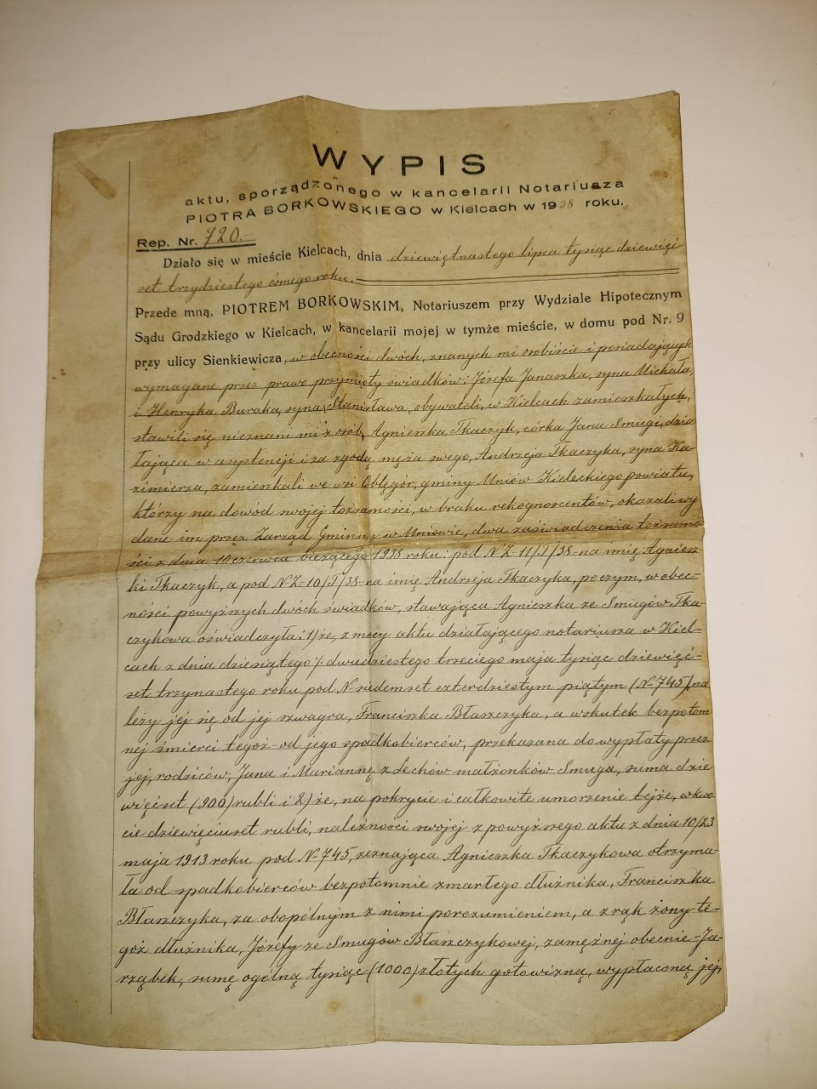 WYPIS
aktu, sporządzonego w kancelarii Notariusza
PIOTRA BORKOWSKIEGO w Kielcach w 1938 roku.
Rep. Nr. 720.-
Działo się w mieście Kielcach, dnia dziewiętnastego lipca tysiąc dziewięć
set trzydziestego ósmego roku.
Przede mną, PIOTREM BORKOWSKIM, Notariuszem przy Wydziale Hipotecznym
Sądu Grodzkiego w Kielcach, w kancelarii mojej w tymże mieście, w domu pod Nr. 9
przy ulicy Sienkiewicza, w obecności dwóch, znanych mi osobiście i posiadających
wymagane przez prawo przymioty świadków: Józefa Janaszka, syna Michała,
i Henryka Buraka, syna Stanisława, obywateli, w Kielcach zamieszkałych,
stawili się nieznani mi z osób, Agnieszka Tkaczyk, córka Jana Smugi, dzia
łająca w asystencji i za zgodą męża swego, Andrzeja Tkaczyka, syna Ka
zimierza, zamieszkali we wsi Oblęgór, gminy Mniów Kieleckiego powiatu,
którzy na dowód swojej tożsamości, w braku rekognoscentów, okazali wy
dane im przez Zarząd Gminny w Mniowie, dwa zaświadczenia tożsamo
ści z dnia 10 czerwca bieżącego 1938 roku: pod N Z-11/I/38- na imię Agniesz
ki Tkaczyk, a pod N Z-10/I/38- na imię Andrzeja Tkaczyka, poczym, w obec-
ności powyższych dwóch świadków, stawająca Agnieszka ze Smugów Tka-
czykowa oświadczyła: 1) że, z mocy aktu działającego notariusza w Kiel-
cach z dnia dziesiątego / dwudziestego trzeciego maja tysiąc dziewięć-
set trzynastego roku pod N siedemset czterdziestym piątym (N-745), na
leży jej się od jej szwagra, Franciszka Błaszczyka, a wskutek bezpotom
nej śmierci tegoż - od jego spadkobierców, przekazana do wypłaty przez
jej rodziców, Jana i Mariannę z Lechów małżonków Smuga, suma dzie
więćset (900) rubli i 2) że, na pokrycie i całkowite umorzenie tejże, w kwo
cie dziewięciuset rubli, należności swojej z powyższego aktu z dnia 10/23
maja 1913 roku pod N-745, zeznająca Agnieszka Tkaczykowa otrzyma-
ła od spadkobierców bezpotomnie zmarłego dłużnika, Franciszka
Błaszczyka, za obopólnym z nimi porozumieniem, a z rąk żony te-
goż dłużnika, Józefy ze Smugów Błaszczykowej, zamężnej obecnie - Ja-
rząbek, sumę ogólną tysiąc (1000) złotych gotowizną, wypłaconą jej